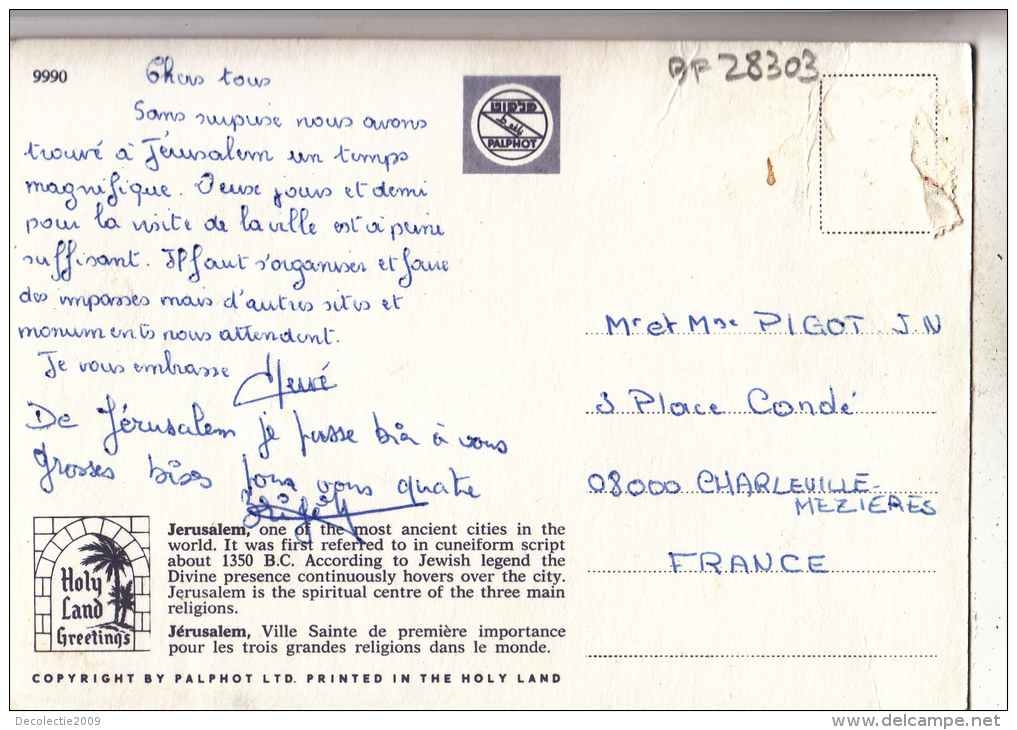 9990
BF 28303
Chers tous
Sans surprise nous avons
trouvé à Jérusalem un temps
magnifique. Deux jours et demi
pour la visite de la ville est à peine
suffisant. Il faut s'organiser et faire
des impasses mais d'autres sites et
monuments nous attendent.
Je vous embrasse
Hervé
De Jérusalem je pense bien à vous
Grosses bises pour vous quatre
פלפוט
PALPHOT
Mr et Mme PIGOT J.N
3 Place Condé
08000 CHARLEVILLE-
MEZIERES
FRANCE
Holy
Land
Greetings
Jerusalem, one of the most ancient cities in the
world. It was first referred to in cuneiform script
about 1350 B.C. According to Jewish legend the
Divine presence continuously hovers over the city.
Jerusalem is the spiritual centre of the three main
religions.
Jérusalem, Ville Sainte de première importance
pour les trois grandes religions dans le monde.
COPYRIGHT BY PALPHOT LTD. PRINTED IN THE HOLY LAND
Decolectie2009
www.delcampe.net